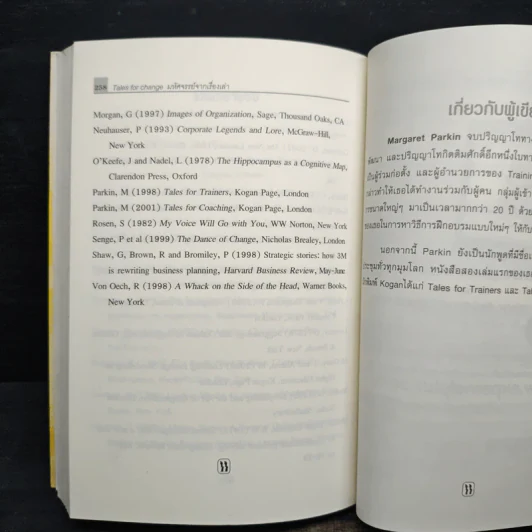 Tales for change มหัศจรรย์จากเรื่องเล่า
Morgan, G (1997) Images of Organization, Sage, Thousand Oaks, CA
Neuhauser, P (1993) Corporate Legends and Lore, McGraw-Hill,
New York
O'Keefe, J and Nadel, L (1978) The Hippocampus as a Cognitive Map,
Clarendon Press, Oxford
Parkin, M (1998) Tales for Trainers, Kogan Page, London
Parkin, M (2001) Tales for Coaching, Kogan Page, London
Rosen, S (1982) My Voice Will Go with You, WW Norton, New York
Senge, P et al (1999) The Dance of Change, Nicholas Brealey, London
Shaw, G, Brown, R and Bromiley, P (1998) Strategic stories: how 3M
is rewriting business planning, Harvard Business Review, May-June
Von Oech, R (1998) A Whack on the Side of the Head, Warner Books,
New York
เกี่ยวกับผู้เขีย
Margaret Parkin จบปริญญาโททาง
พัฒนา และปริญญาโทกิตติมศักดิ์อีกหนึ่งใบทาง
เป็นผู้ร่วมก่อตั้ง และผู้อำนวยการของ Trainin
กล่าวทำให้เธอได้ทำงานร่วมกับผู้คน กลุ่มผู้เข้า
ขนาดใหญ่ๆ มาเป็นเวลามากกว่า 20 ปี ด้วย
ของเธอในการหาวิธีการฝึกอบรมแบบใหม่ๆ ให้กับ
นอกจากนี้ Parkin ยังเป็นนักพูดที่มีชื่อเ
ประชุมทั่วทุกมุมโลก หนังสือสองเล่มแรกของเธอ
พิมพ์ Koganได้แก่ Tales for Trainers และ Tal